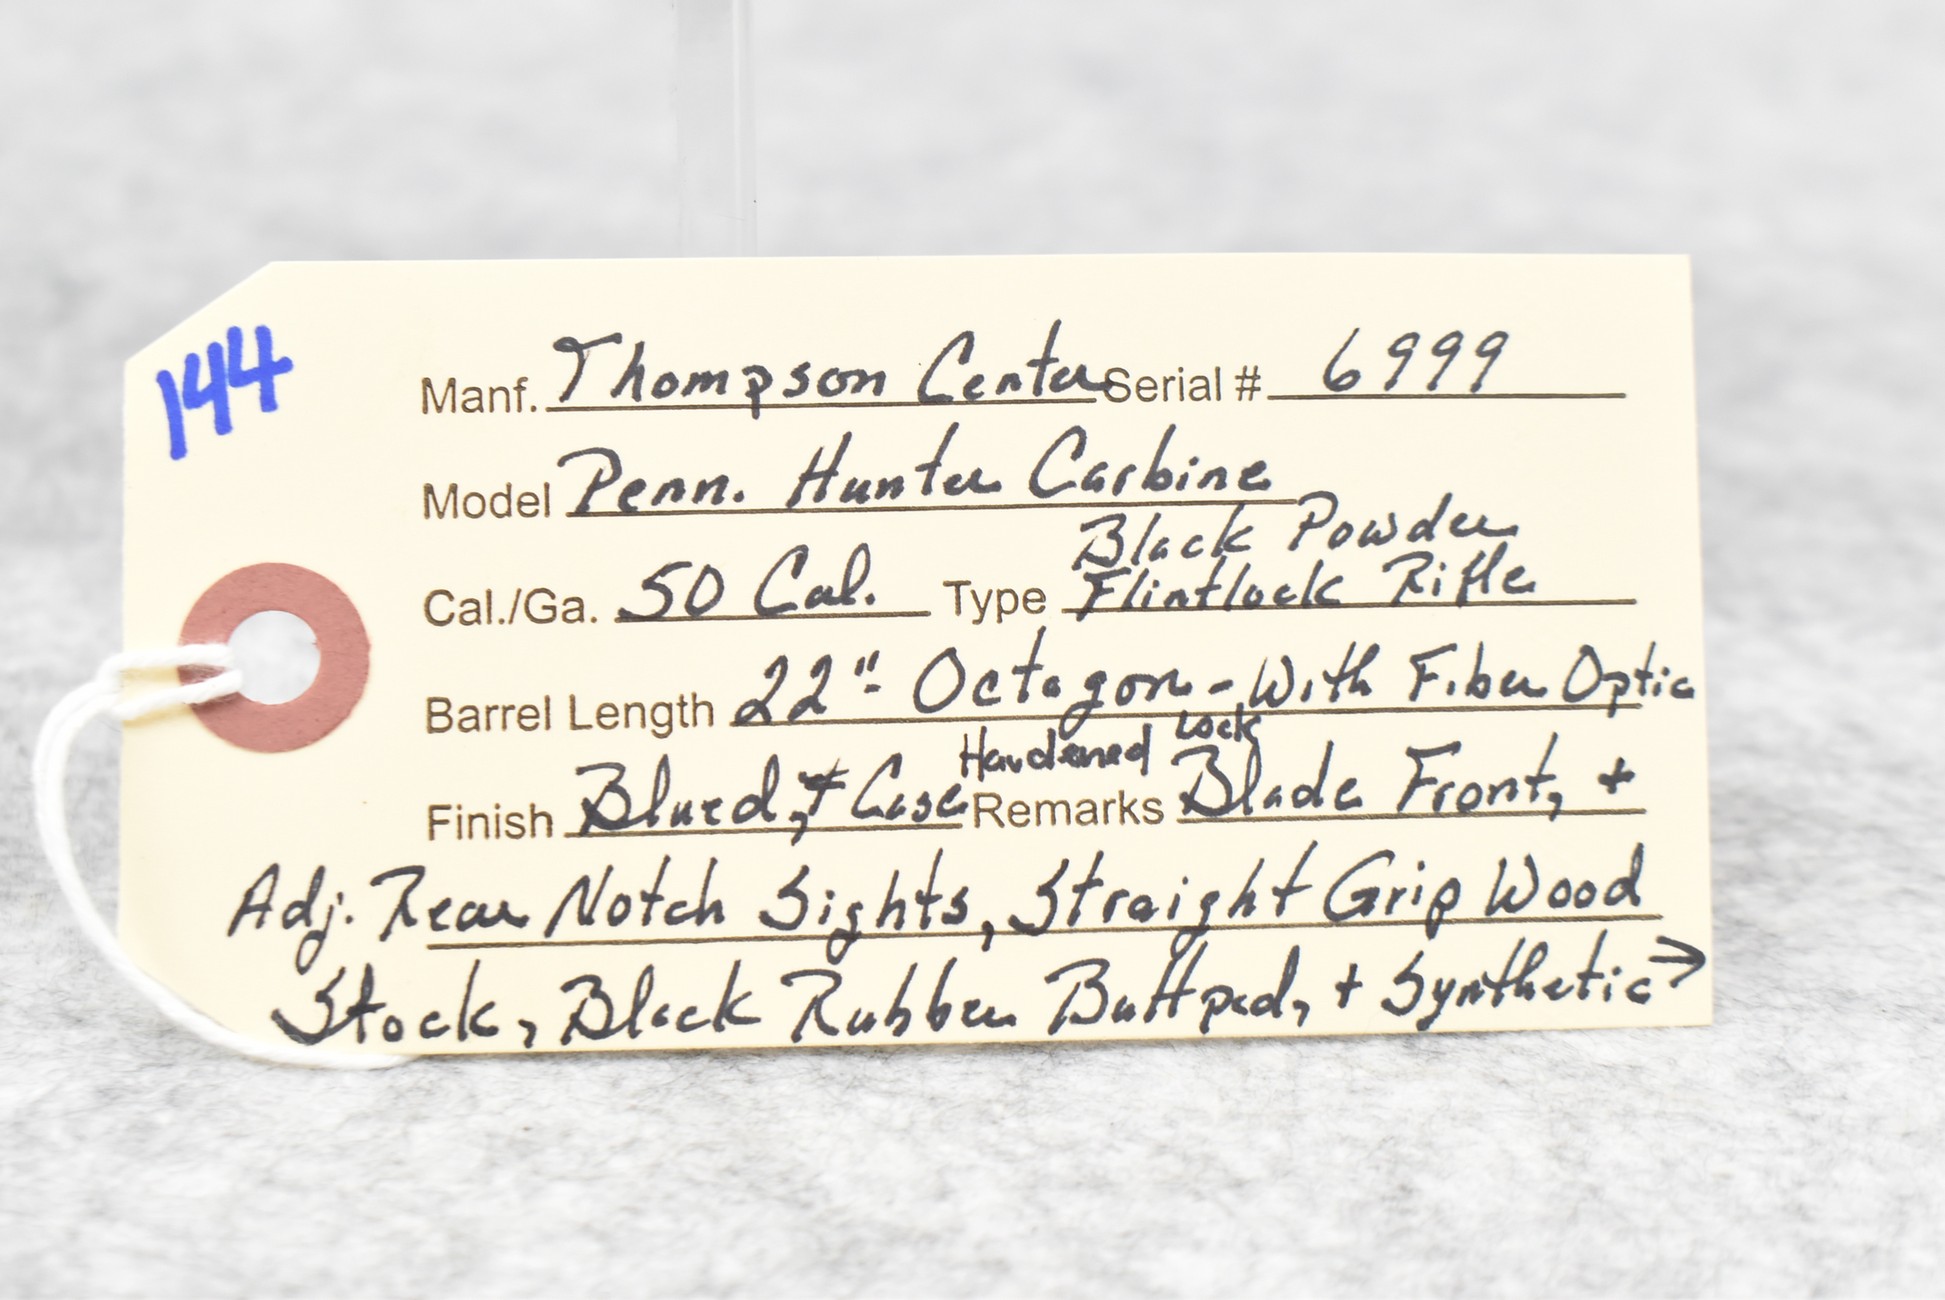 144
Manf. Thompson Center Serial # 6999
Model Penn. Hunter Carbine
Black Powder
Cal./Ga. 50 Cal. Type Flintlock Rifle
Barrel Length 22" - Octagon - With Fiber Optic
Hardened Lock
Finish Blued, + Case Remarks Blade Front, +
Adj. Rear Notch Sights, Straight Grip Wood
Stock, Black Rubber Buttpad, + Synthetic →